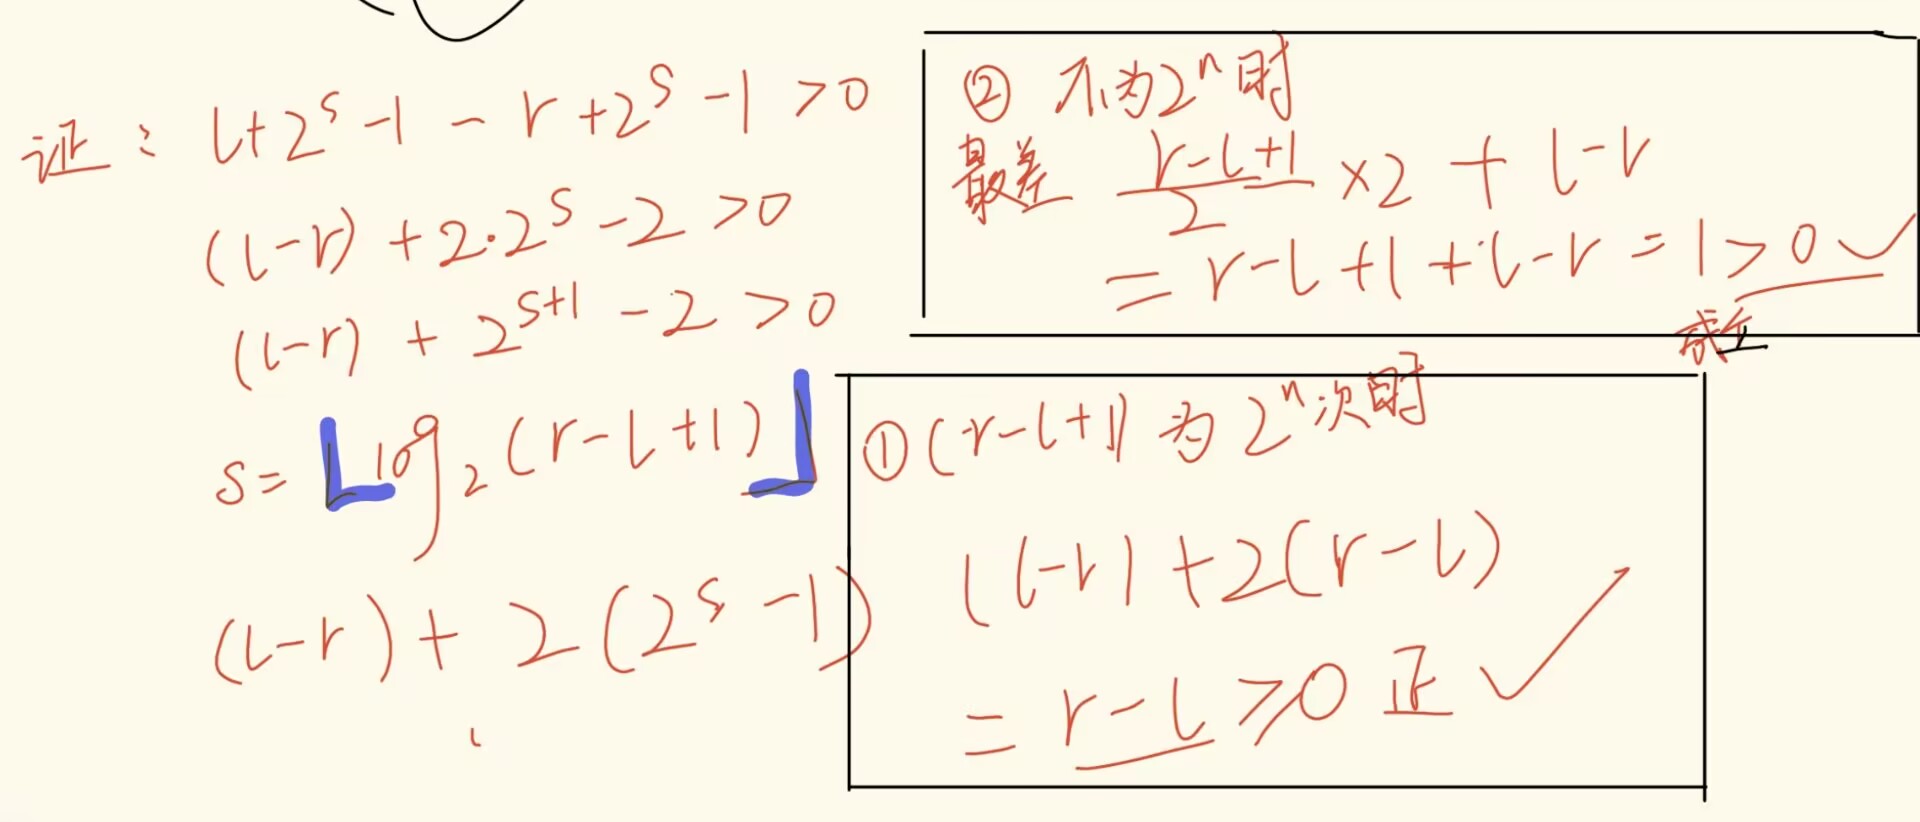 证: l+2^s-1-r+2^s-1>0
(l-r)+2·2^s-2>0
(l-r)+2^{s+1}-2>0
s=⌊log₂(r-l+1)⌋
(l-r)+2(2^s-1)
② 不为2^n时
最差 \frac{r-l+1}{2}×2+l-r
=r-l+1+l-r=1>0✓
成立
①(r-l+1)为2^n次时
(l-r)+2(r-l)
=r-l≥0 正 ✓